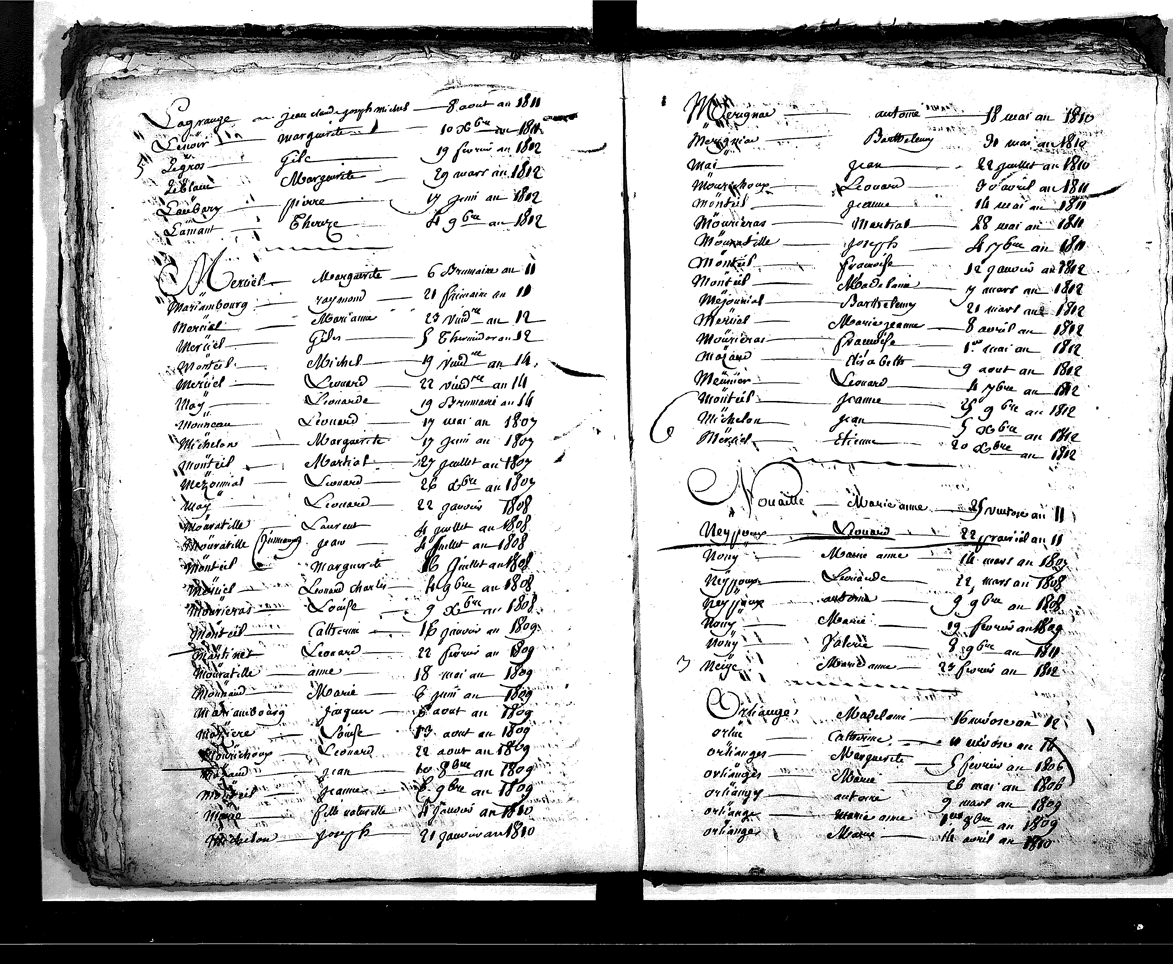 Lagrange jean claude joseph michel 8 aout an 1811
Lenoir marguerite 10 Xbre an 1811
5 Legros Gile 19 fevrier an 1812
Leblanc Marguerite 29 mars an 1812
Laubary pierre 17 juin an 1812
Lamant Thereze 4 9bre an 1812
Merciel Marguerite 6 Brumaire an 11
Mariambourg raymond 21 frimaire an 11
Merciel Marianne 23 vendre an 12
Merciel Giles 5 Thermidor an 12
Monteil Michel 19 vendre an 14
Merciel Leonard 22 vendre an 14
May Leonarde 19 Brumaire an 14
Mouneau Léonard 17 mai an 1807
Michelon Marguerite 17 juin an 1807
Monteil Martial 27 juillet an 1807
Mezonnial Leonard 26 Xbre an 1807
May Leonard 22 janvier 1808
Mouratille Laurent 4 juillet an 1808
Mouratille (jumeaux) jean 4 juillet an 1808
Monteil Marguerite 16 juillet an 1808
Merciel Leonard charles 4 9bre an 1808
Mourieras Louise 9 Xbre an 1808
Monteil Catherine 16 janvier an 1809
Martinet Léonard 22 fevrier an 1809
Mouratille anne 18 mai an 1809
Monnaud Marie 6 juin an 1809
Mariambourg Jacques aout an 1809
Louise 13 aout an 1809
Mourichoux Leonard 22 aout an 1809
jean 10 8bre an 1809
Monteil jeanne 6 9bre an 1809
Marie fille naturelle 4 janvier an 1810
Michelon joseph 21 janvier an 1810
Merignac antoine 18 mai an 1810
Merignac Barthelemy 31 mai an 1810
Mai jean 22 juillet an 1810
Mourichoux Léonard 30 avril an 1811
Monteil jeanne 14 mai an 1811
Mourieras Martial 28 mai an 1811
Mouratille joseph 4 7bre an 1811
Monteil françoise 12 janvier an 1812
Monteil Madelaine 7 mars an 1812
Mejounial Barthelemy 21 mars an 1812
Merciel Marie jeanne 8 avril an 1812
Mourieras françoise 1er mai an 1812
Mazaud elisabeth 9 aout an 1812
Meunier Léonard 4 7bre an 1812
Monteil jeanne 25 9bre an 1812
Michelon jean 5 Xbre an 1812
Merciel Etienne 20 Xbre an 1812
Nouaille Marie anne 25 ventose an 11
Neyjoux Léonard 22 prairial an 11
Nony Marie anne 14 mars an 1807
Neyjoux Leonarde 22 mars an 1808
Neyjoux antoine 9 9bre an 1808
Nony Marie 19 fevrier an 1809
Nony Valerie 8 9bre an 1811
3 Neige Marie anne 23 fevrier an 1812
Orliange Madelaine 16 nivose an 12
orlue Catherine 11 nivose an
orlianges Marguerite 5 fevrier an 1806
orlianges Marie 26 mai an 1806
orliangy antoine 9 mars an 1809
orliange marie anne 1er 8bre an 1809
orliange Marie 14 avril an 1810